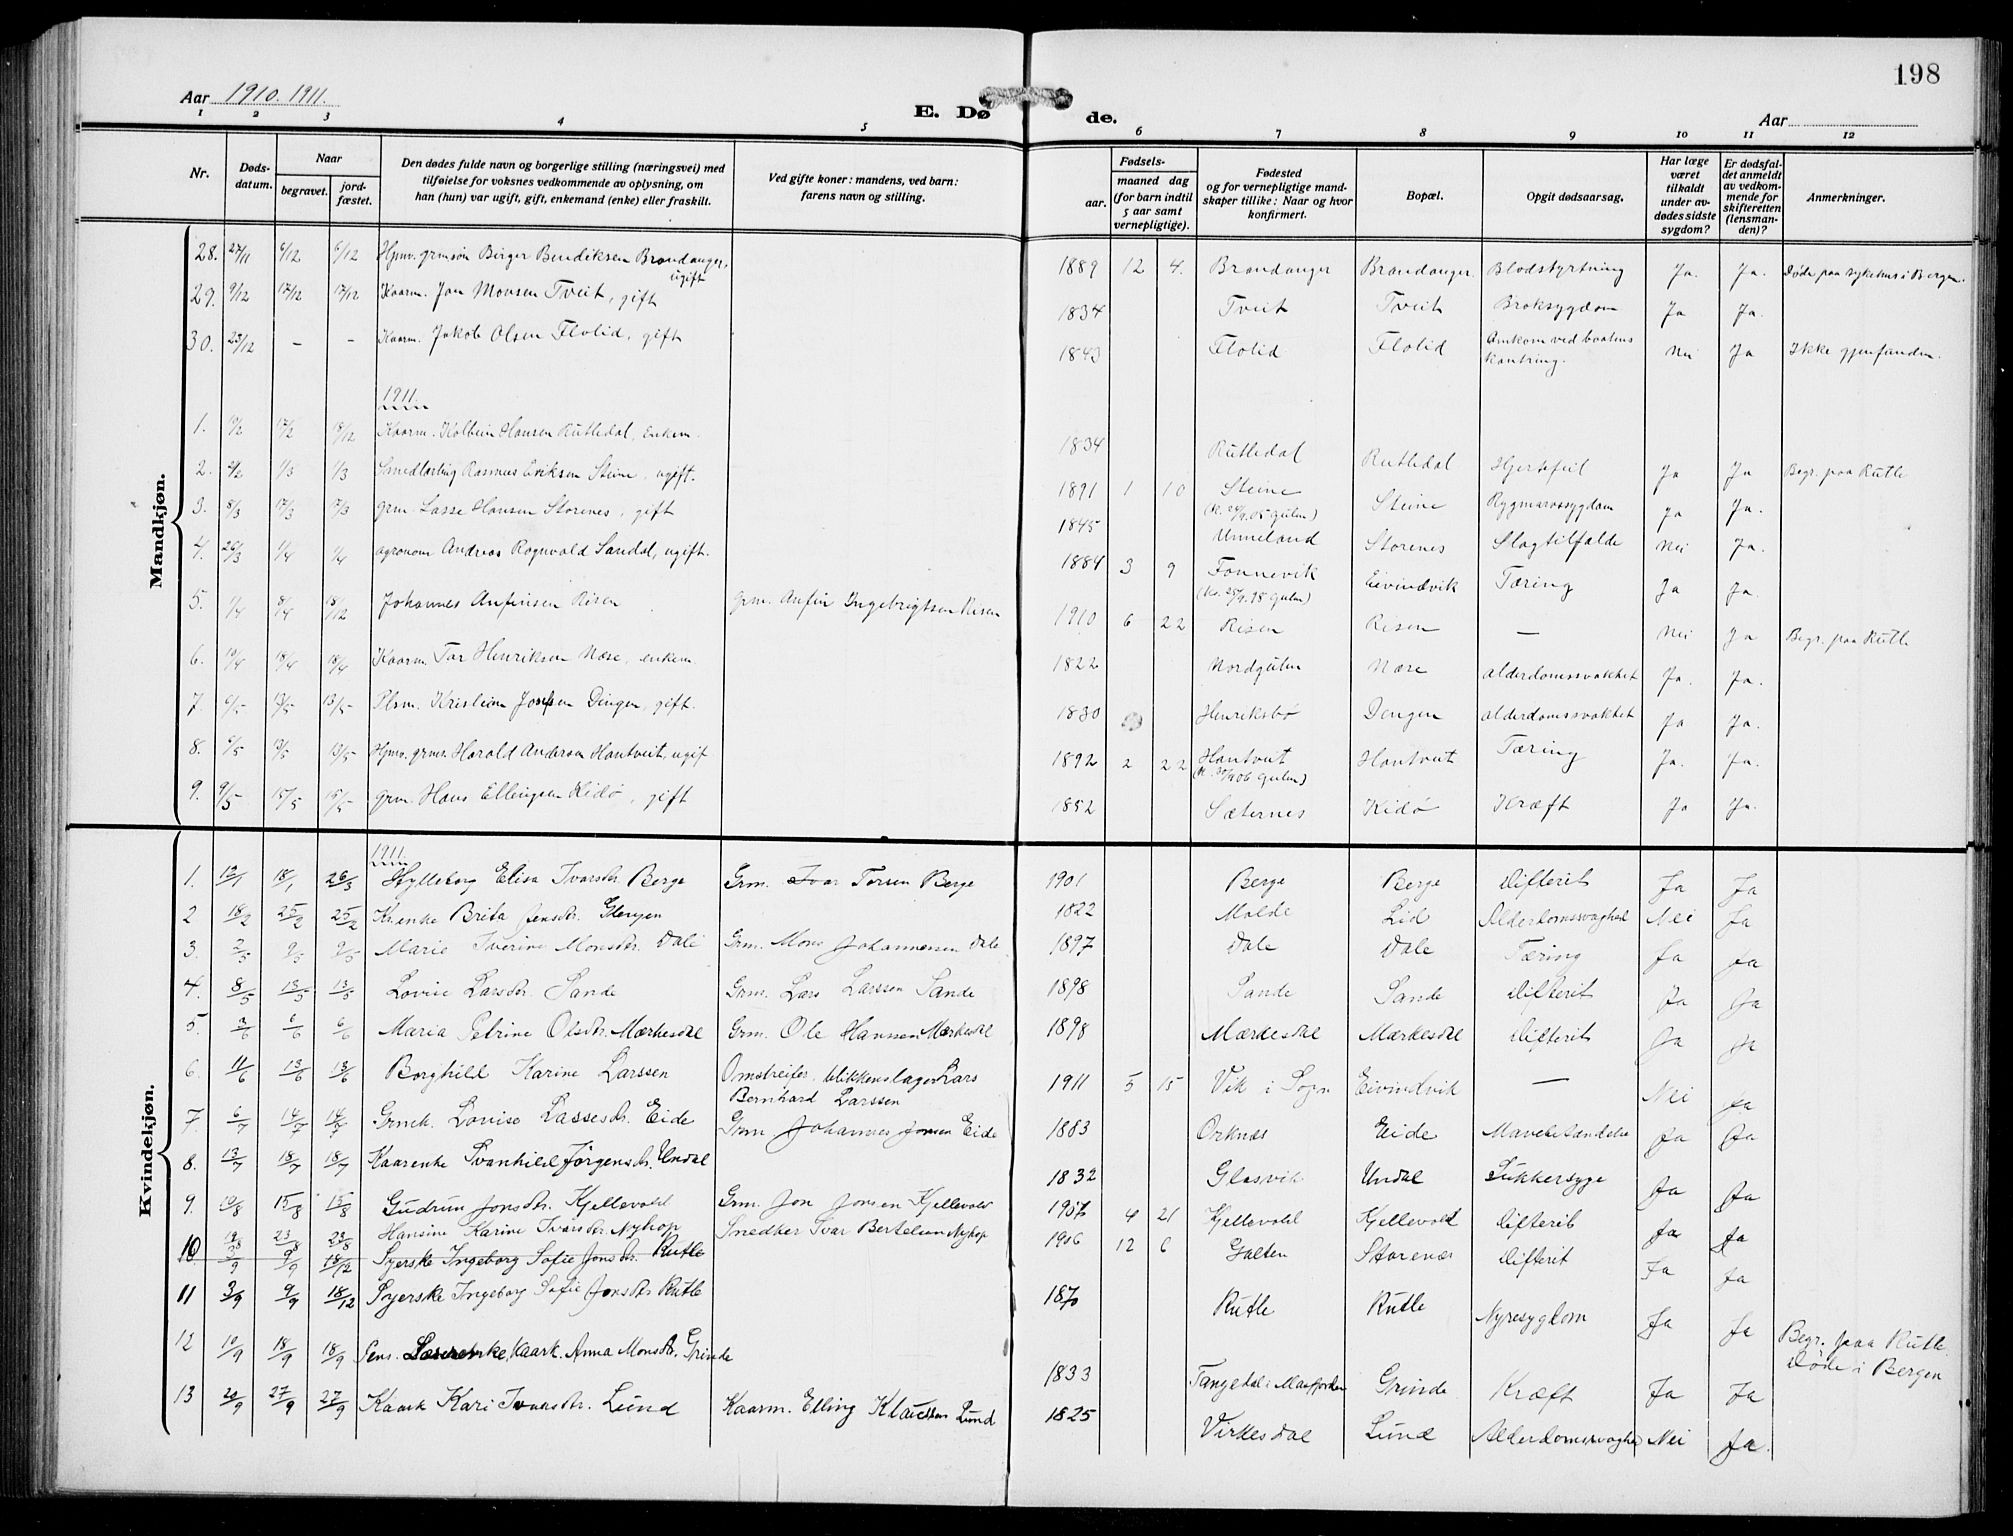 198
Aar 1910. 1911.
E. Døde.
Aar
1 2 3 4 5 6 7 8 9 10 11 12
Nr.
Døds-datum.
Naar
begravet.
jord-fæstet.
Den dødes fulde navn og borgerlige stilling (næringsvei) med
tilføielse for voksnes vedkommende av oplysning, om
han (hun) var ugift, gift, enkemand (enke) eller fraskilt.
Ved gifte koner: mandens, ved barn:
farens navn og stilling.
Fødsels-
aar.
maaned dag
(for barn indtil
5 aar samt
vernepligtige).
Fødested
og for vernepligtige mand-
skaper tillike: Naar og hvor
konfirmert.
Bopæl.
Opgit dødsaarsag.
Har læge
været
tilkaldt
under av-
dødes sidste
sygdom?
Er dødsfal-
det anmeldt
av vedkom-
mende for
skifteretten
(lensman-
den)?
Anmerkninger.
Mandkjøn.
28. 27/11 6/12 6/12 Hpmv. grmsøn Birger Bendiksen Brandanger, ugift 1889 12 4. Brandanger Brandanger. Blodstyrtning Ja. Ja. Døde paa sykehus i Bergen.
29. 9/12 17/12 17/12 Kaarm. Jan Monsen Tveit, gift 1834 Tveit Tveit Broksygdom Ja Ja.
30. 23/12 – – Kaarm. Jakob Olsen Flolid, gift 1843 Flolid Flolid Omkom ved baatens kantring. Nei Ja Ikke gjenfunden.
1911.
1. 17/2 18/12 Kaarm. Kolbein Hansen Rutledal, enkem. 1834 Rutledal Rutledal Hjertefeil Ja Ja Begr. paa Rutle
2. 1/3 1/3 Smedlærling Rasmus Eriksen Steine, ugift. 1891 1 10 Steine (K. 24/9.05 Gulen) Steine Rygmarvssygdom Ja Ja.
3. 8/3 17/3 17/3 Grm. Lasse Hansen Storenes, gift 1845 Unneland Storenes Slagtilfælde Nei Ja.
4. 26/3 1/4 1/4 agronom Andreas Rognvald Sandal, ugift. 1884 3 9 Fonnevik (Ko. 25/9.98 Gulen) Eivindvik Tæring Ja Ja.
5. 1/4 8/4 18/12 Johannes Anfinsen Risen Grm. Anfin Ingebrigtsen Risen 1910 6 22 Risen Risen — Nei Ja Begr. paa Rutle
6. 10/4 18/4 18/4 Kaarm. Tor Henriksen Næse, enkem. 1822 Nordgulen Næse alderdomssvakhet Ja. Ja.
7. 6/5 13/5 13/5 Plsm. Kristian Josefsen Dingen, gift. 1830 Henriksbø Dengen alderdomssvakhet Ja Ja.
8. 6/5 13/5 13/5 Hpmv. grmsn. Harald Andersen Hantveit, ugif 1892 2 22 Hantveit Hantveit Tæring Ja. Ja.
9. 9/5 15/5 15/5 Grm. Hans Ellingsen Kidø, gift 1852 Sæternes Kidø Kræft Ja Ja.
Kvindekjøn.
1911.
1. 12/1 18/1 26/3 Hylleborg Elisa Ivarsdtr. Berge Grm. Ivar Torsen Berge 1901 Berge Berge Difterit Ja Ja
2 18/2 25/2 25/2 Kr.enke Brita Jensdtr. Glenjen 1822 Molde Lid Alderdomssvaghed Nei Ja
3. 2/5 9/5 9/5 Marie Iverine Monsdtr. Dale Grm. Mons Johannessen Dale 1897 Dale Dale Tæring Ja Ja
4. 8/5 13/5 13/5 Lovise Larsdtr. Sande Grm. Lars Larssen Sande 1898 Sande Sande Difterit Ja Ja
5. 2/6 6/6 6/6 Maria Petrine Olsdtr. Mærkesdal Grm. Ole Hanssen Mærkesdal 1898 Mærkesdal Mærkesdal Difterit Ja Ja
6. 11/6 13/6 13/6 Borghild Karine Larssen Omstreifer, blikkenslager Lars Bernhard Larssen 1911 5 15 Vik i Sogn Eivindvik — Nei Ja
7. 6/7 14/7 14/7 Grmk. Lovise Lassesdtr. Eide Grm Johannes Jonsen Eide 1883 Orknæs Eide Mavebetændelse Ja Ja
8. 13/7 18/7 18/7 Kaarenke Svanhild Jørgensdtr. Undal 1832 Glosvik Undal Sukkersyge Ja Ja
9. 10/8 15/8 15/8 Gudrun Jonsdtr. Kjellevold Grm. Jon Jonsen Kjellevold 1907 4 21 Kjellevold Kjellevold Difterit Ja Ja
10 19/8 23/8 23/8 Hansine Karine Ivarsdtr. Nyhop Snedker Ivar Bertelsen Nyhop 1906 12 6 Galten Storenæs Difterit Ja Ja
3/9 9/9 18/12 Syerske Ingeborg Sofie Jonsdtr. Rutle
11 3/9 9/9 18/12 Syerske Ingeborg Sofie Jonsdtr. Rutle 1870 Rutle Rutle Nyresygdom Ja Ja Begr. paa Rutle.
12 10/9 18/9 18/9 Pens. Kaark. Anna Monsdtr. Grinde 1833 Tangedal i Grinde Kræft Ja Ja Døde i Bergen
13 20/9 27/9 27/9 Kaark Kari Ivarsdtr. Lund Kaarm. Elling Klausen Lund 1825 Virkesdal Lund Alderdomssvaghed Nei Ja.